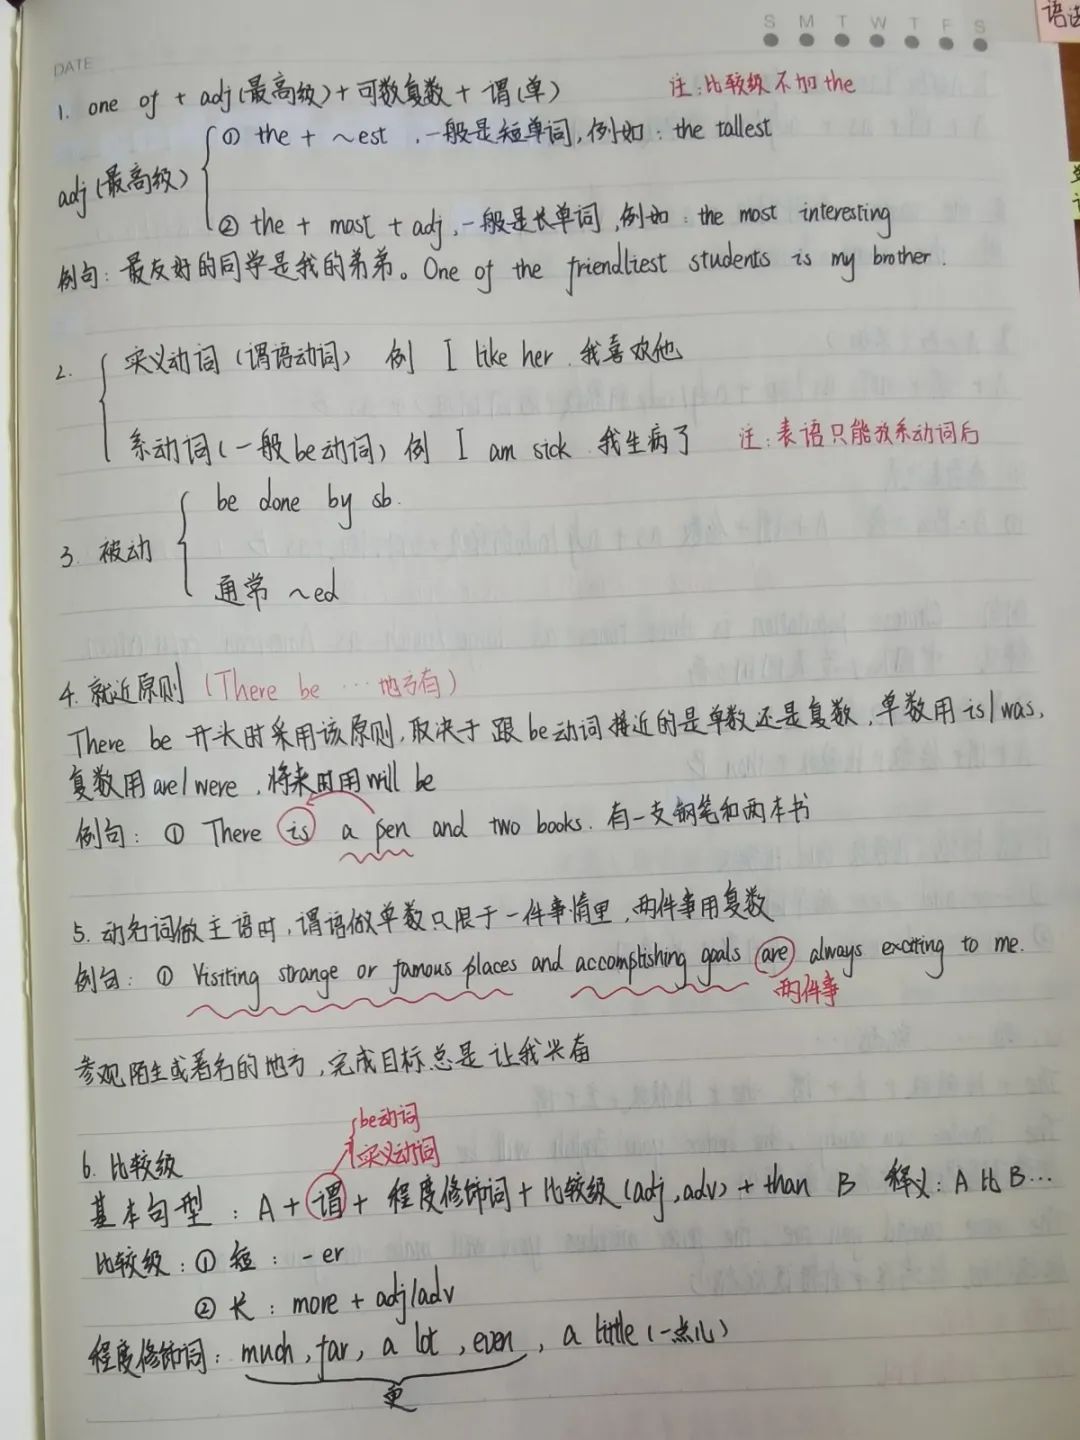 S M T W T F S
语法
DATE
1. one of + adj(最高级)+可数复数+谓(单)
注:比较级不加the
adj(最高级)
① the + ~est ,一般是短单词,例如: the tallest
② the + most + adj,一般是长单词,例如: the most interesting
例句: 最友好的同学是我的弟弟。One of the friendliest students is my brother.
2. 实义动词(谓语动词) 例 I like her. 我喜欢他
系动词(一般be动词) 例 I am sick. 我生病了
注:表语只能放系动词后
3. 被动
be done by sb.
通常 ~ed
4. 就近原则 (There be …地方有)
There be 开头时采用该原则,取决于跟be动词接近的是单数还是复数,单数用is/was,
复数用are/were,将来时用will be
例句: ① There is a pen and two books. 有一支钢笔和两本书
5. 动名词做主语时,谓语做单数只限于一件事情里,两件事用复数
例句: ① Visiting strange or famous places and accomplishing goals are always exciting to me.
两件事
参观陌生或著名的地方,完成目标总是让我兴奋
be动词
实义动词
6. 比较级
基本句型: A+谓+程度修饰词+比较级(adj,adv)+than B 释义:A比B…
比较级:① 短: -er
② 长: more + adj/adv
程度修饰词: much, far, a lot, even, a little(一点儿)
更